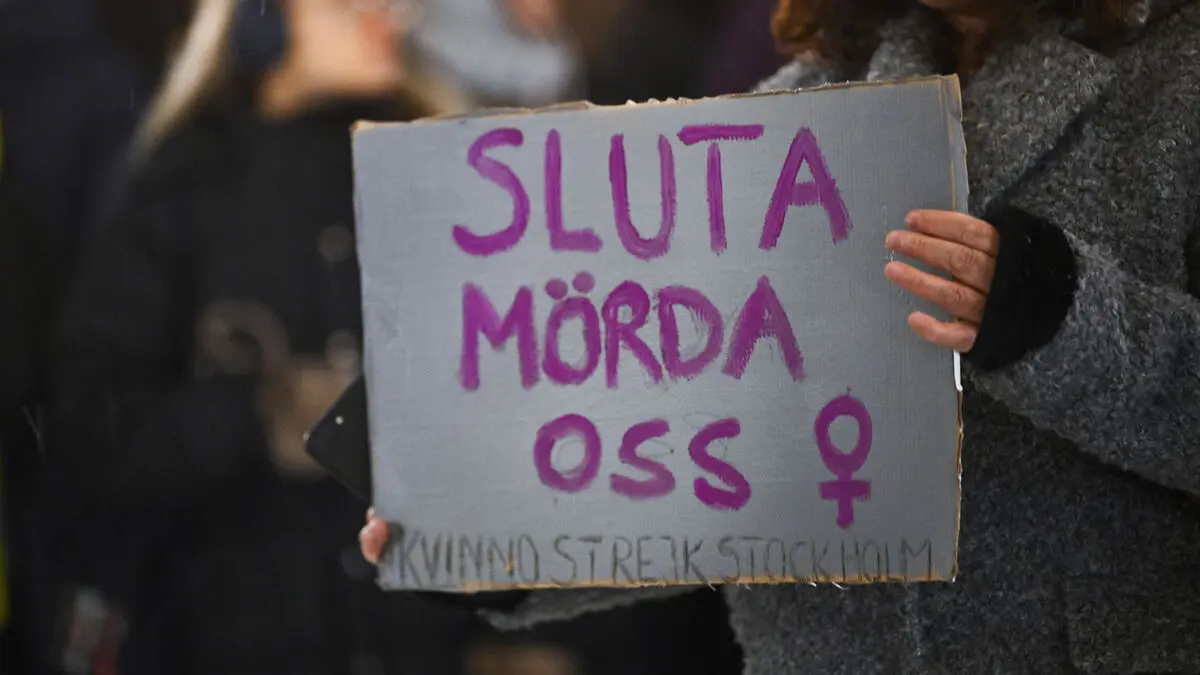 SLUTA
MÖRDA
OSS ♀
KVINNOSTREJK STOCKHOLM